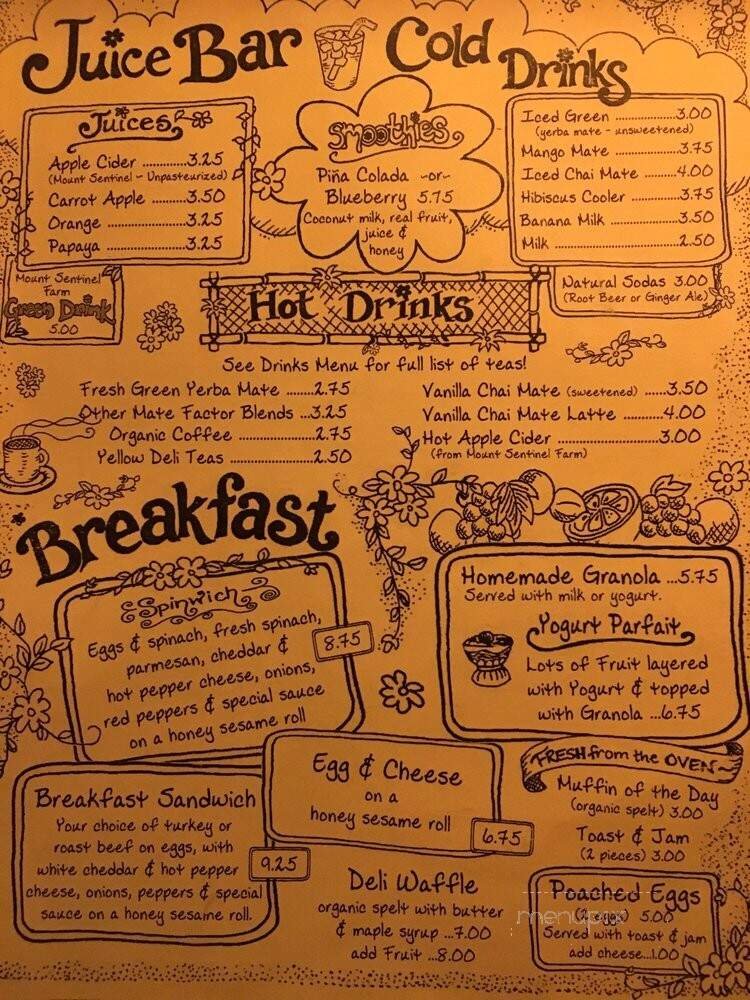 Juice Bar
Cold Drinks
Juices
Apple Cider ...........3.25
(Mount Sentinel - Unpasteurized)
Carrot Apple ..........3.50
Orange ................3.25
Papaya ................3.25
Mount Sentinel
Farm
Green Drink
5.00
Smoothies
Piña Colada -or-
Blueberry 5.75
Coconut milk, real fruit,
juice &
honey
Iced Green ...............3.00
(yerba mate - unsweetened)
Mango Mate ...............3.75
Iced Chai Mate .........4.00
Hibiscus Cooler .........3.75
Banana Milk ..............3.50
Milk .........................2.50
Natural Sodas 3.00
(Root Beer or Ginger Ale)
Hot Drinks
See Drinks Menu for full list of teas!
Fresh Green Yerba Mate .......2.75
Other Mate Factor Blends ...3.25
Organic Coffee ....................2.75
Yellow Deli Teas ..................2.50
Vanilla Chai Mate (sweetened) .....3.50
Vanilla Chai Mate Latte ..........4.00
Hot Apple Cider ......................3.00
(from Mount Sentinel Farm)
Breakfast
Spinwich
Eggs & spinach, fresh spinach,
parmesan, cheddar &
hot pepper cheese, onions,
red peppers & special sauce
on a honey sesame roll
8.75
Homemade Granola ...5.75
Served with milk or yogurt.
Yogurt Parfait
Lots of Fruit layered
with Yogurt & topped
with Granola ...6.75
Breakfast Sandwich
Your choice of turkey or
roast beef on eggs, with
white cheddar & hot pepper
cheese, onions, peppers & special
sauce on a honey sesame roll.
9.25
Egg & Cheese
on a
honey sesame roll
6.75
Deli Waffle
organic spelt with butter
& maple syrup ...7.00
add Fruit ...8.00
FRESH from the OVEN
Muffin of the Day
(organic spelt) 3.00
Toast & Jam
(2 pieces) 3.00
Poached Eggs
(2 eggs) 5.00
Served with toast & jam
add cheese...1.00
menupix